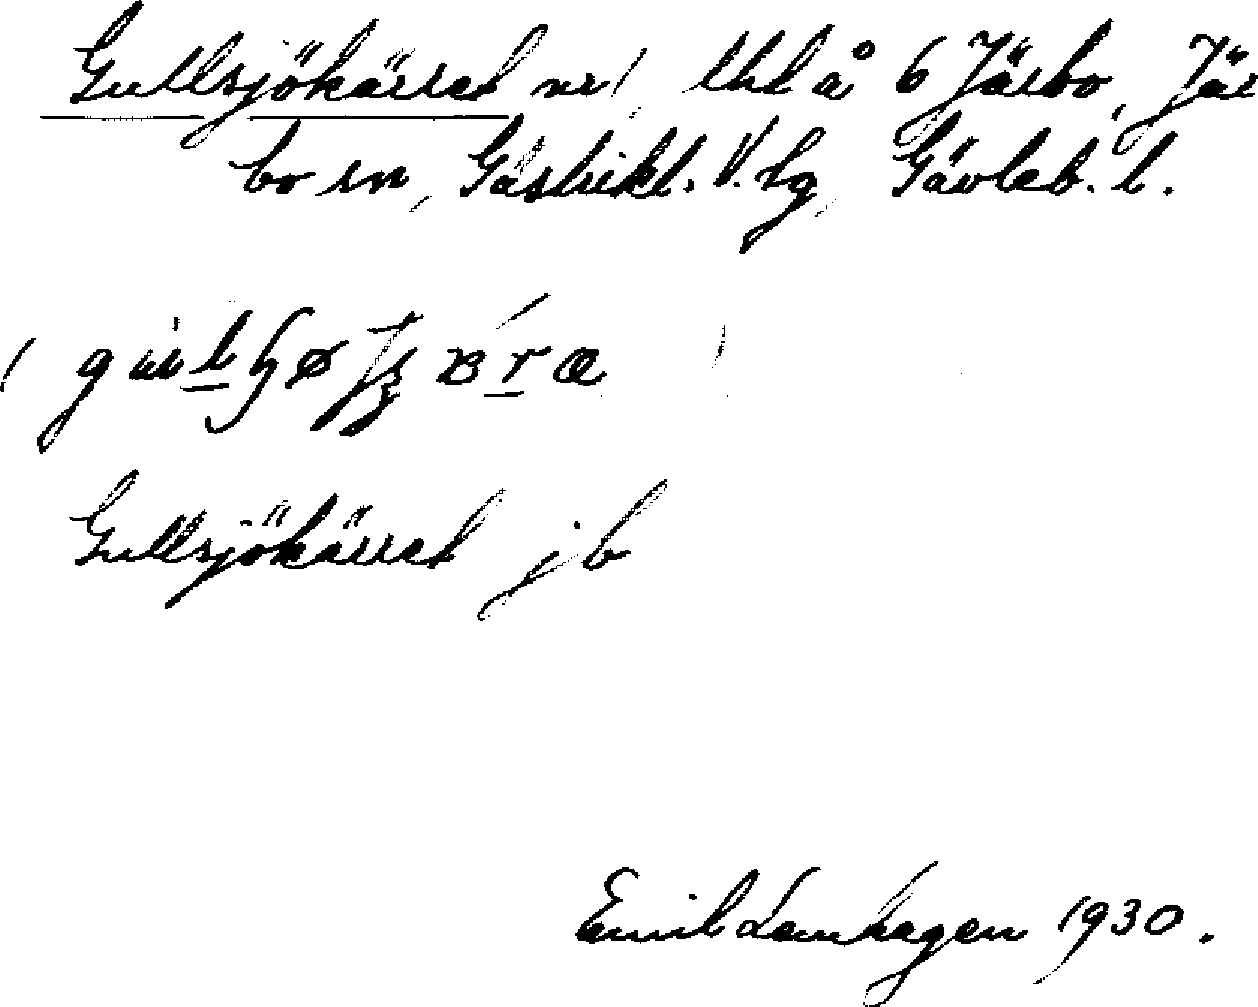 Gullsjökärret
å 6 Järbo, Jär
bo sn, Gästrikl. V. tg, Gävleb. l.
Gullsjökärret jb
Emil Lamhagen 1930.